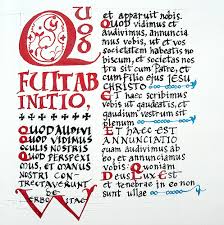 QUOD
FUIT AB
INITIO,
QUOD AUDIVI
QUOD VIDIMUS
OCULIS NOSTRIS
QUOD PERSPEXI
MUS, ET MANUS
NOSTRI CON
TRECTAVERUNT
DE
VERBO VITAE
et apparuit nobis.
Quod vidimus et
audivimus, annuncia
mus vobis, ut et vos
societatem habeatis no
biscum, et societas nos
tra sit cum Patre, et
cum filio ejus JESU
CHRISTO
Et haec scribimus
vobis ut gaudeatis, et
gaudium vestrum sit
plenum
ET HAEC EST
ANNUNCIATIO
quam audivimus ab
eo, et annunciamus
vobis: Quoniam
DEUS LUX EST
et tenebrae in eo non
sunt ullae